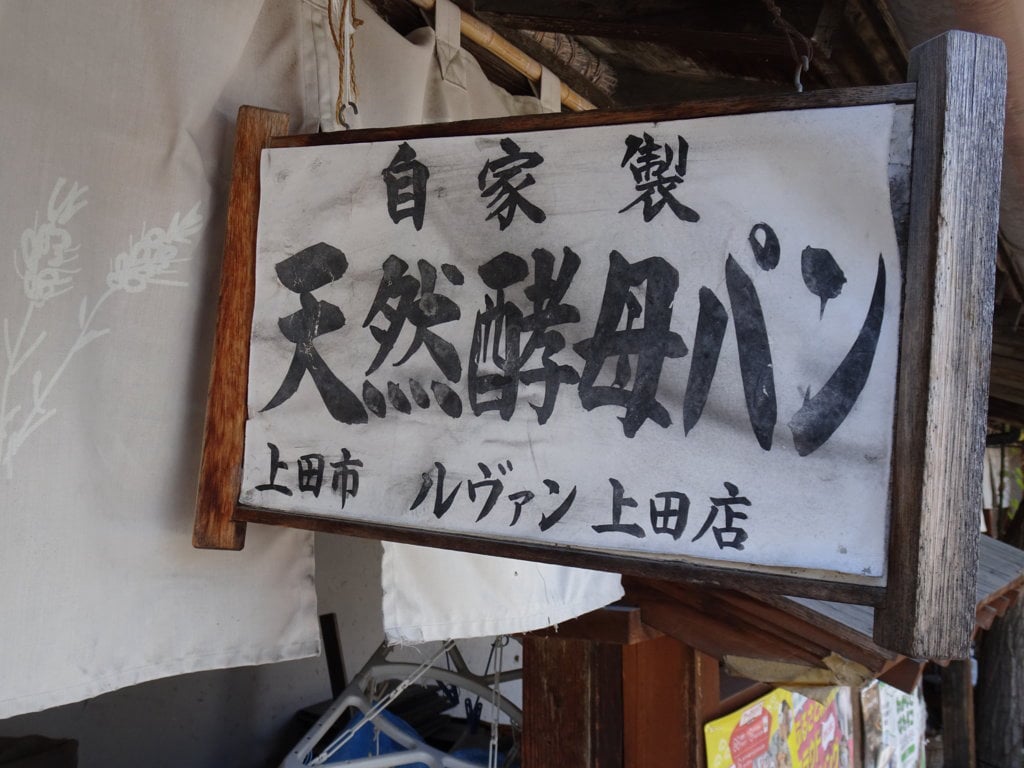 自家製
天然酵母パン
上田市 ルヴァン上田店